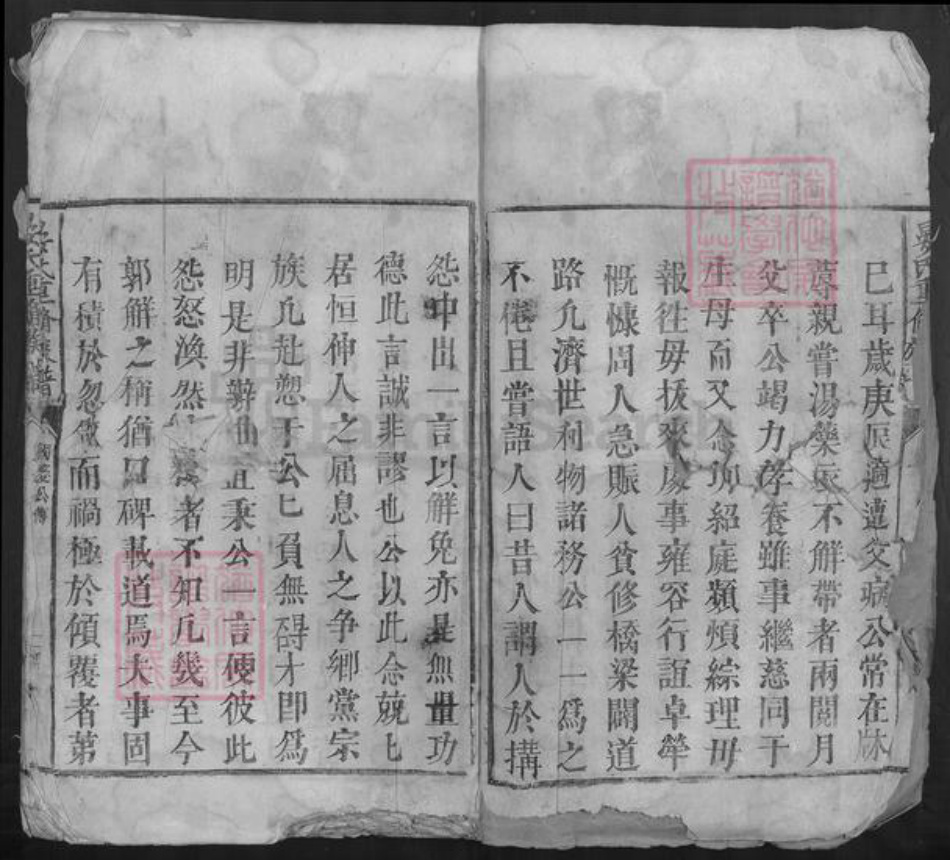 巳耳歲庚辰適遭父病公常在牀
蓐親嘗湯藥衣不解帶者兩閱月
父卒公竭力孝養雖事繼慈同于
生母而又念功紹庭類煩綜理毋
報徃毋拔來處事雍容行誼卓犖
慨慷周人急賑人貧修橋梁闢道
路凢濟世利物諸務公一一爲之
不倦且嘗語人曰昔人謂人於搆
怨中出一言以解免亦是無量功
德此言誠非謬也公以此念兢匕
居恒伸人之屈息人之争鄉黨宗
族凢赴愬于公匕質無碍才即爲
明是非辦曲直秉公一言便彼此
怨怒渙然者不知凢幾至今
郭解之稱猶口碑載道焉大事固
有積於忽微而禍極於傾覆者第
重脩族譜
國鋈公傳